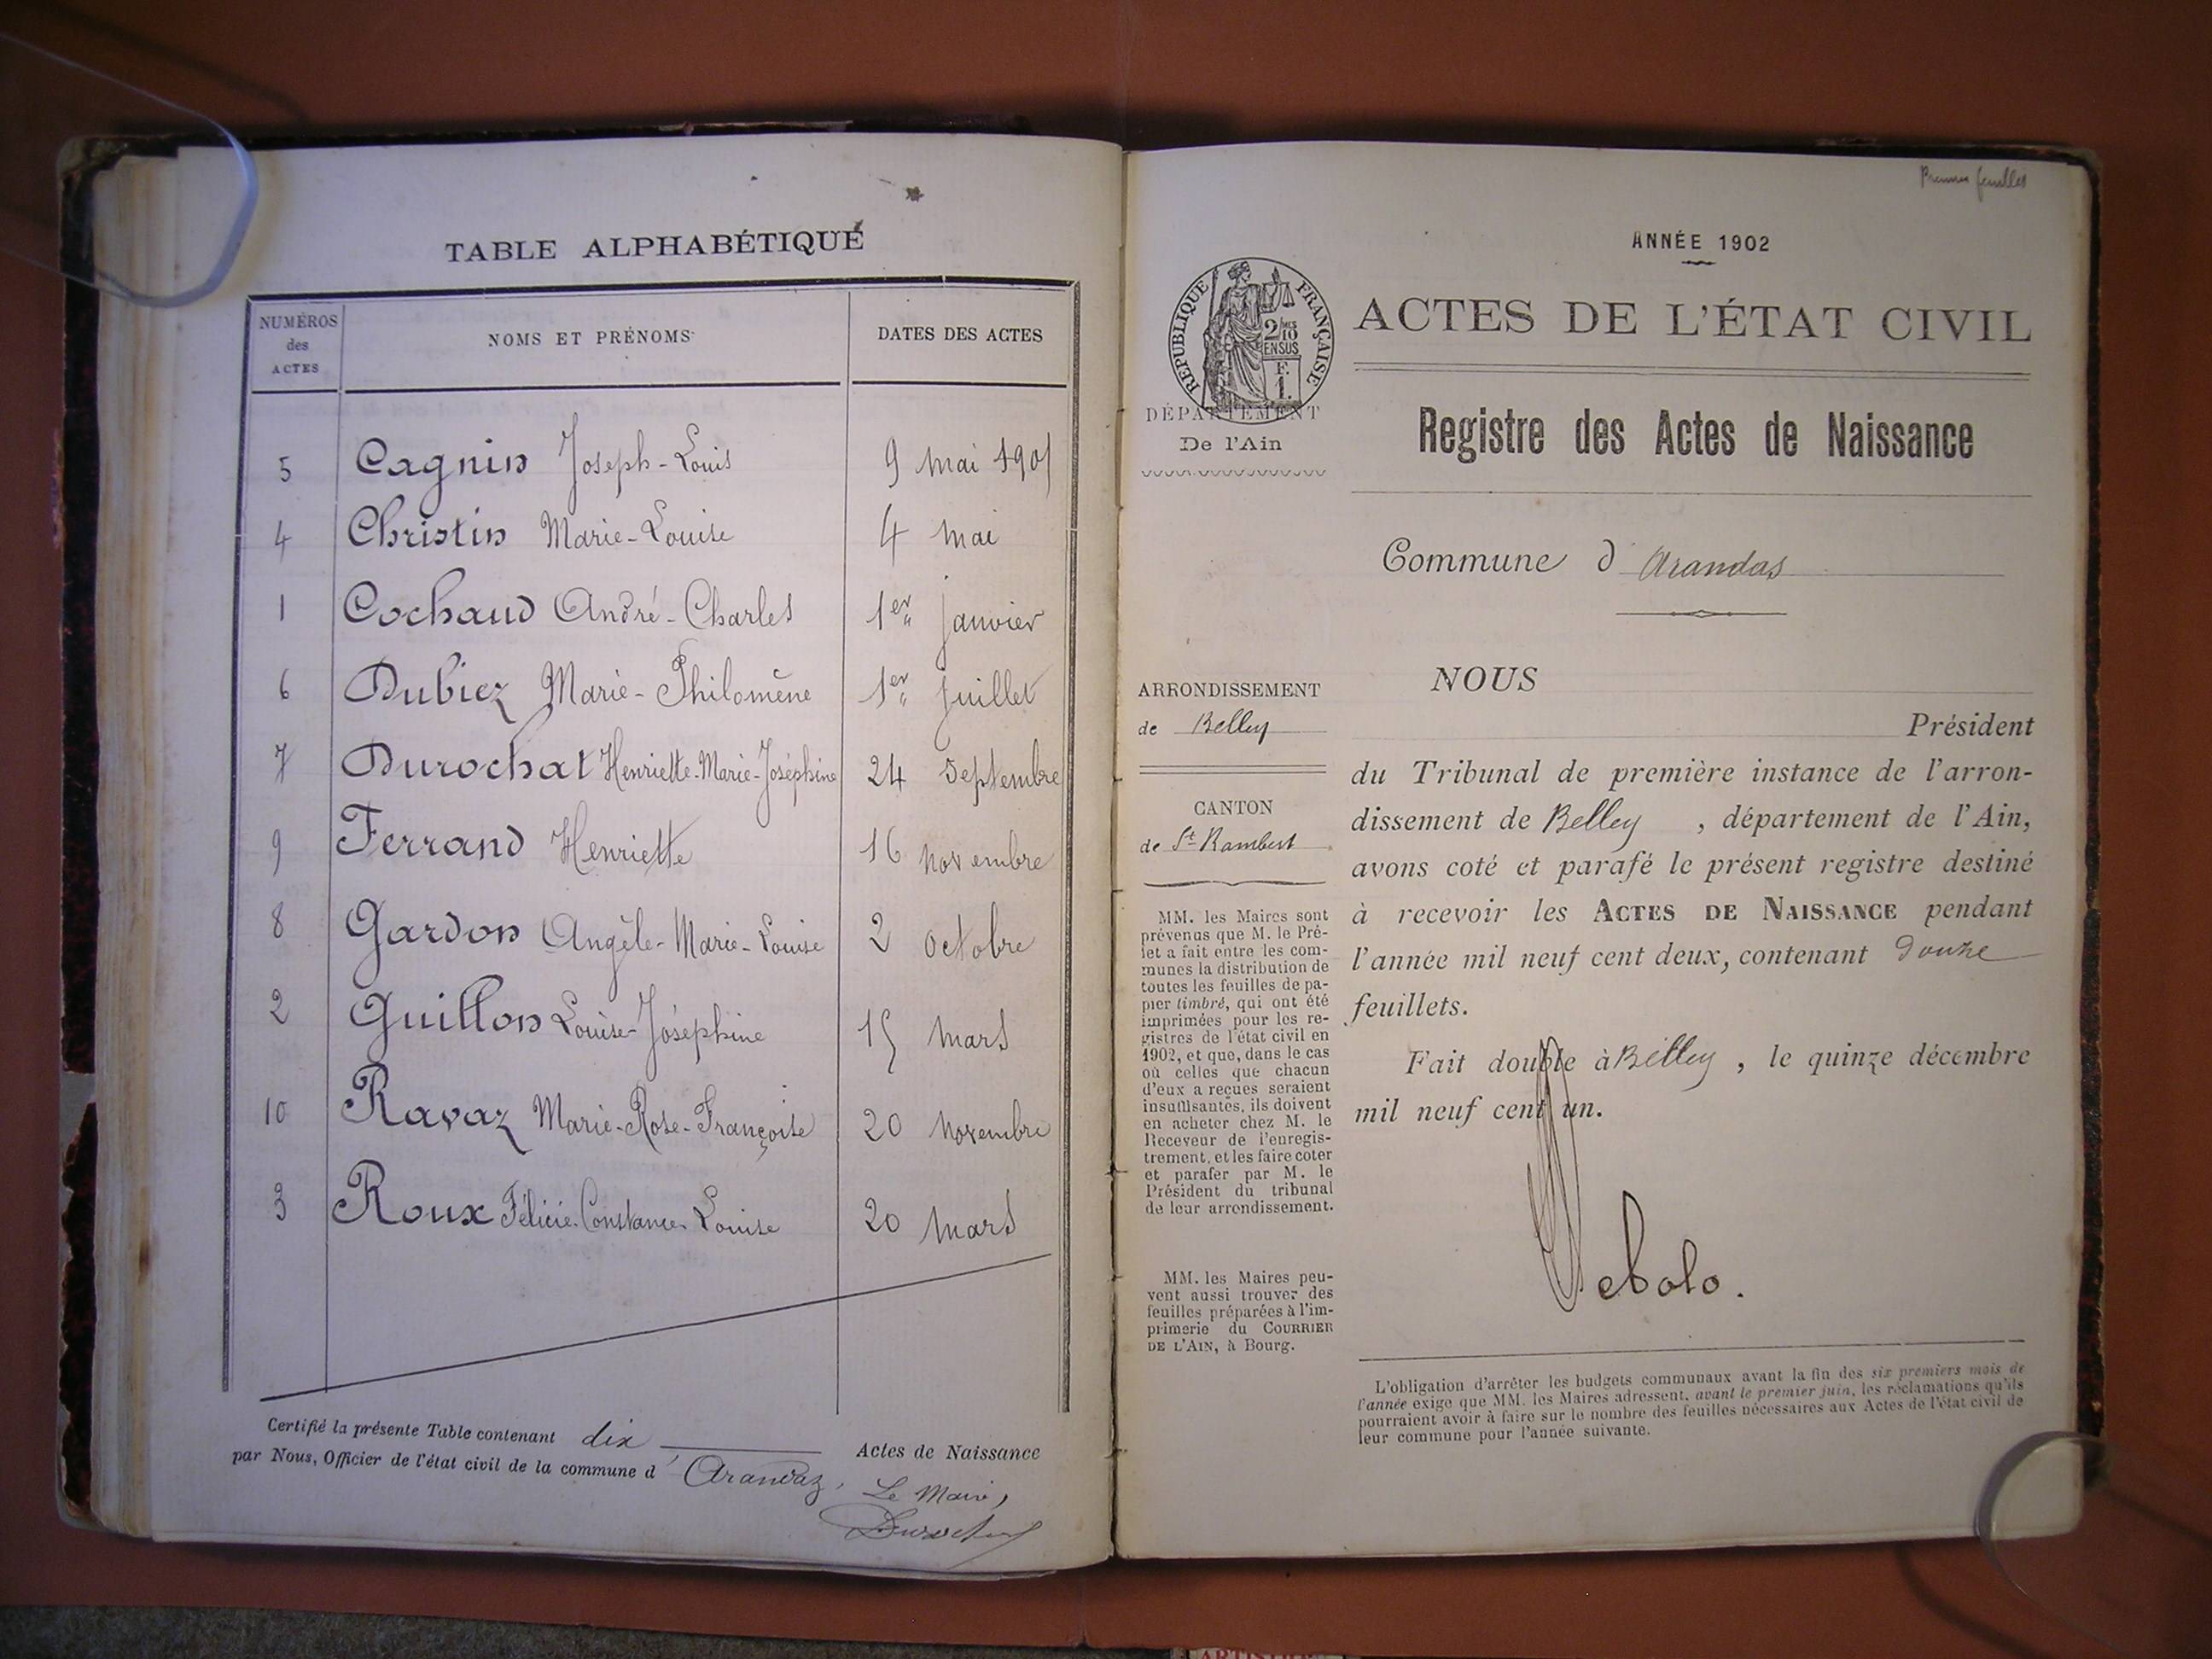 TABLE ALPHABÉTIQUE
NUMÉROS des ACTES
NOMS ET PRÉNOMS
DATES DES ACTES
5 Cagnin Joseph-Louis 9 mai 1901
4 Christin Marie-Louise 4 mai
1 Cochaud André-Charles 1er janvier
6 Dubiez Marie-Philomène 1er juillet
7 Durochat Henriette-Marie-Joséphine 24 Septembre
9 Ferrand Henriette 16 novembre
8 Gardon Angèle-Marie-Louise 2 Octobre
2 Guillon Louise-Joséphine 15 mars
10 Ravaz Marie-Rose-Françoise 20 novembre
3 Roux Félicie-Constance-Louise 20 mars
Certifié la présente Table contenant dix Actes de Naissance
par Nous, Officier de l'état civil de la commune d'Arandaz,
Le Maire,
Durochat
Premier feuillet
ANNÉE 1902
RÉPUBLIQUE FRANÇAISE
2/10
EN SUS
F.
1.
DÉPARTEMENT
De l'Ain
ACTES DE L'ÉTAT CIVIL
Registre des Actes de Naissance
Commune d'Arandas
ARRONDISSEMENT
de Belley
CANTON
de St Rambert
MM. les Maires sont
prévenus que M. le Pré-
fet a fait entre les com-
munes la distribution de
toutes les feuilles de pa-
pier timbré, qui ont été
imprimées pour les re-
gistres de l'état civil en
1902, et que, dans le cas
où celles que chacun
d'eux a reçues seraient
insuffisantes, ils doivent
en acheter chez M. le
Receveur de l'enregis-
trement, et les faire coter
et parafer par M. le
Président du tribunal
de leur arrondissement.
MM. les Maires peu-
vent aussi trouver des
feuilles préparées à l'im-
primerie du COURRIER
DE L'AIN, à Bourg.
NOUS
Président
du Tribunal de première instance de l'arron-
dissement de Belley, département de l'Ain,
avons coté et parafé le présent registre destiné
à recevoir les ACTES DE NAISSANCE pendant
l'année mil neuf cent deux, contenant douze
feuillets.
Fait double à Belley, le quinze décembre
mil neuf cent un.
L'obligation d'arrêter les budgets communaux avant la fin des six premiers mois de
l'année exige que MM. les Maires adressent, avant le premier juin, les réclamations qu'ils
pourraient avoir à faire sur le nombre des feuilles nécessaires aux Actes de l'état civil de
leur commune pour l'année suivante.